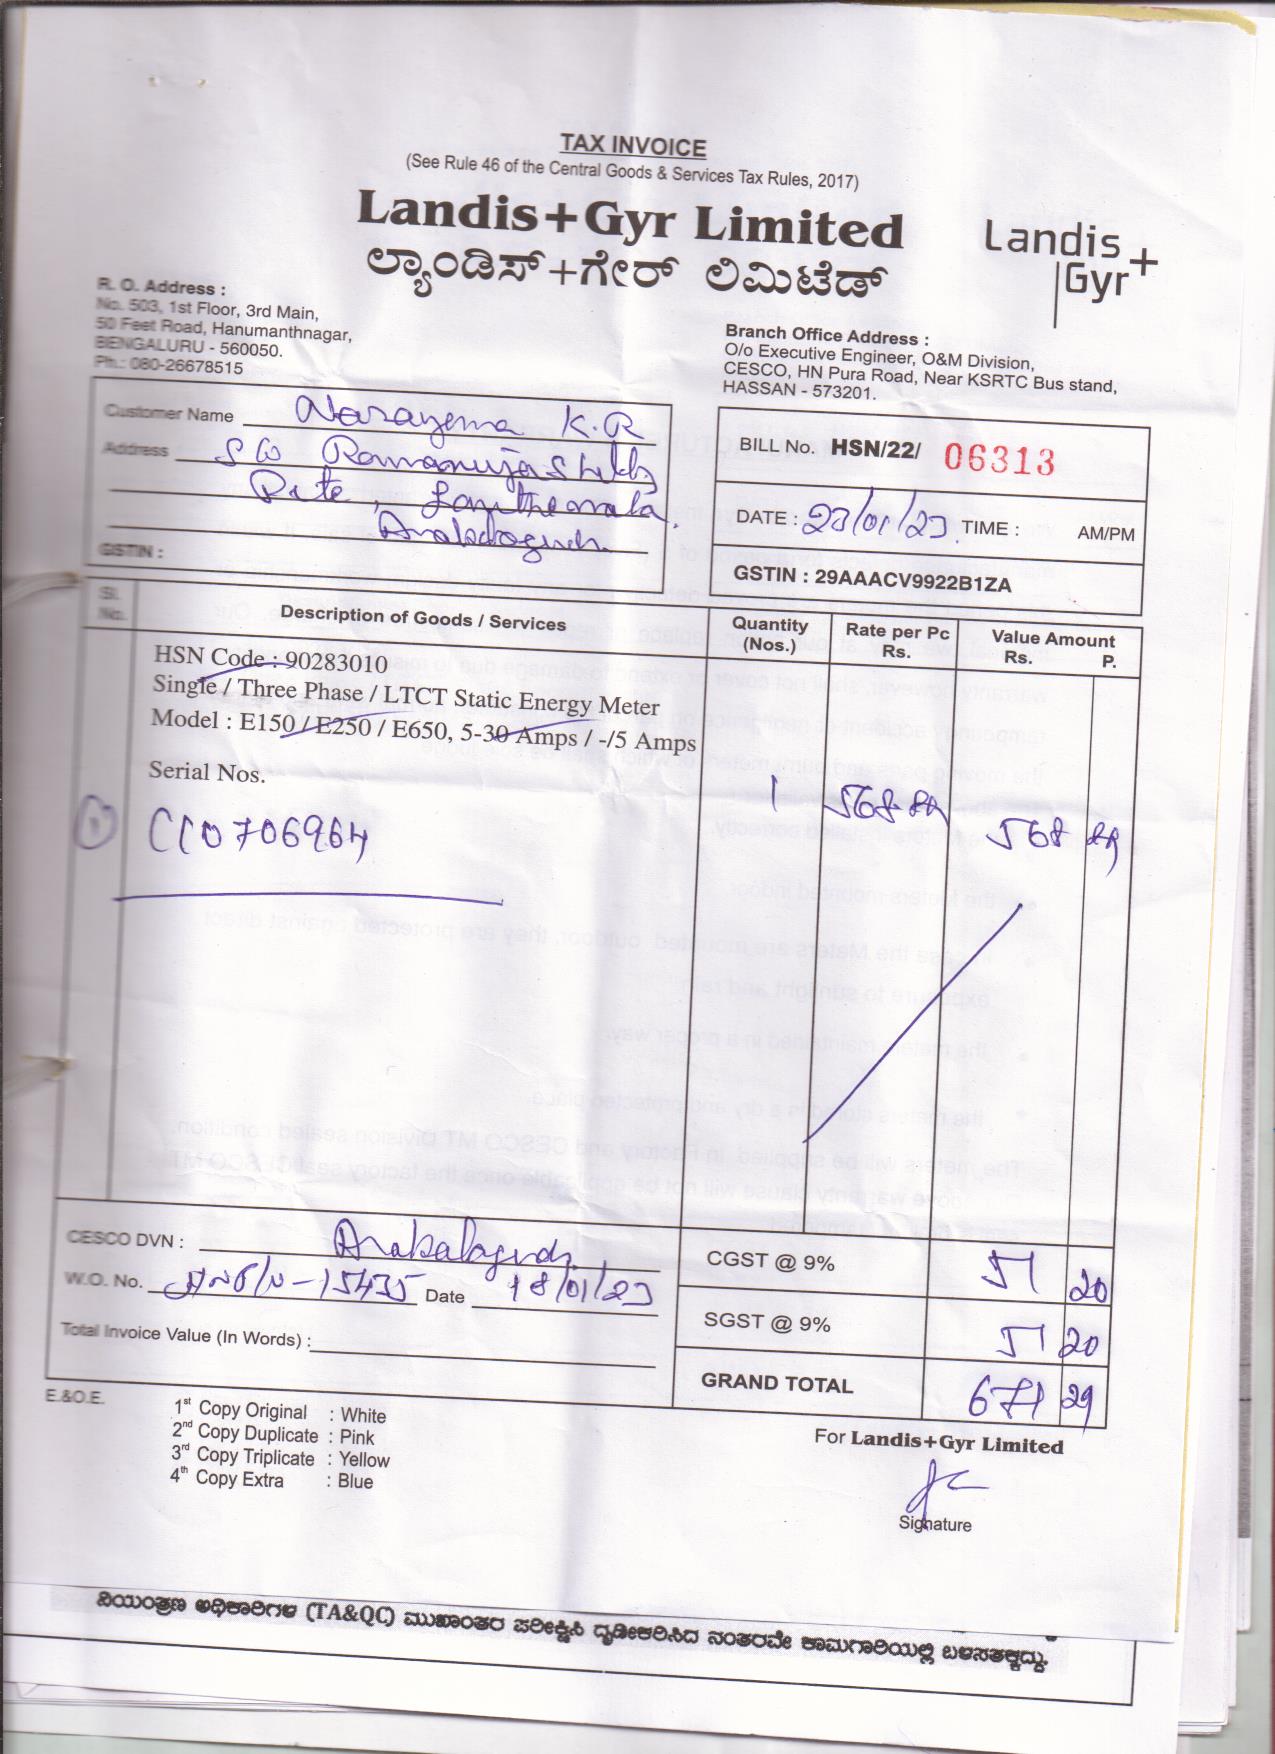 TAX INVOICE
(See Rule 46 of the Central Goods & Services Tax Rules, 2017)
Landis+Gyr Limited
ಲ್ಯಾಂಡಿಸ್+ಗೇರ್ ಲಿಮಿಟೆಡ್
Landis+
Gyr
R. O. Address :
No. 503, 1st Floor, 3rd Main,
50 Feet Road, Hanumanthnagar,
BENGALURU - 560050.
Ph.: 080-26678515
Branch Office Address :
O/o Executive Engineer, O&M Division,
CESCO, HN Pura Road, Near KSRTC Bus stand,
HASSAN - 573201.
Customer Name Narayana K.R
Address S/o Ramanujashetty
Pete,
GSTIN :
BILL No. HSN/22/ 06313
DATE : 23/01/23 TIME : AM/PM
GSTIN : 29AAACV9922B1ZA
Sl. No. Description of Goods / Services Quantity (Nos.) Rate per Pc Rs. Value Amount Rs. P.
HSN Code : 90283010
Single / Three Phase / LTCT Static Energy Meter
Model : E150 / E250 / E650, 5-30 Amps / -/5 Amps
Serial Nos.
1 CC0706964 1 568-89 568 89
CESCO DVN : Arakalagudu
W.O. No. 15435 Date 18/01/23
Total Invoice Value (In Words) :
CGST @ 9% 51 20
SGST @ 9% 51 20
GRAND TOTAL 671 29
E.&O.E.
1st Copy Original : White
2nd Copy Duplicate : Pink
3rd Copy Triplicate : Yellow
4th Copy Extra : Blue
For Landis+Gyr Limited
Signature
ನಿಯಂತ್ರಣ ಅಧಿಕಾರಿಗಳ (TA&QC) ಮುಖಾಂತರ ಪರೀಕ್ಷಿಸಿ ದೃಢೀಕರಿಸಿದ ನಂತರವೇ ಕಾಮಗಾರಿಯಲ್ಲಿ ಬಳಸತಕ್ಕದ್ದು.